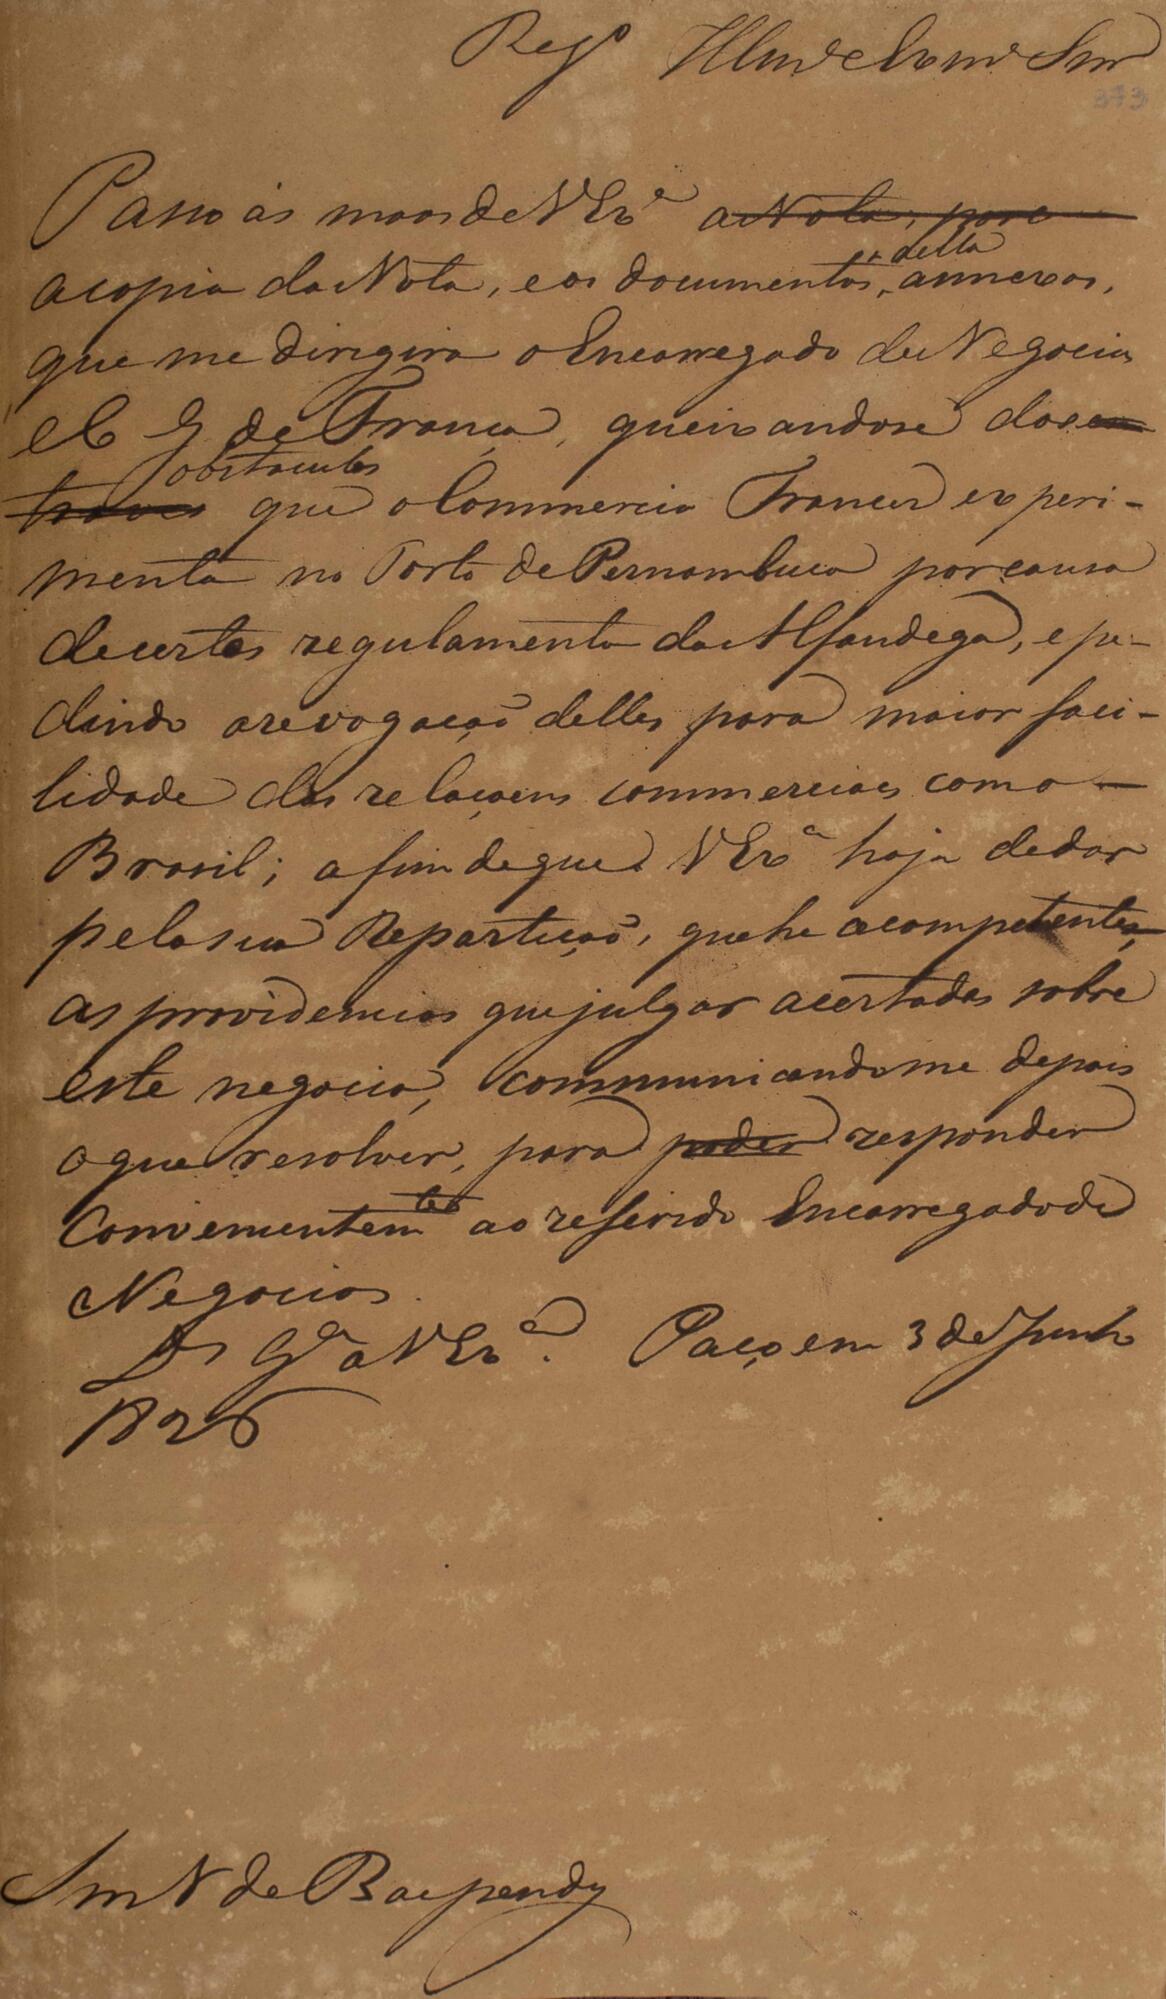 Reg.º Illmo e Exmo Snr
373
Passo ás maos de V Ex.ª a Nota, para
a copia da Nota, e os documentos, della annexos,
que me dirigira o Encarregado de Negocios
e C G de França, queixandose dos en
traves obstaculos que o Commercio Francez experi-
menta no Porto de Pernambuco por causa
de certos regulamentos da Alfandega, e pe-
dindo a revogação delles para maior faci-
lidade das relaçoens commerciaes com o
Brasil; a fim de que V Ex.ª haja de dar
pela sua Repartição, que he a competente,
as providencias que julgar acertadas sobre
este negocio, communicandome depois
o que resolver, para poder responder
Convenientem.te ao referido Encarregado de
Negocios.
Ds G.e a V Ex.ª. Paço em 3 de Junho
1826
Snr V de Baependy